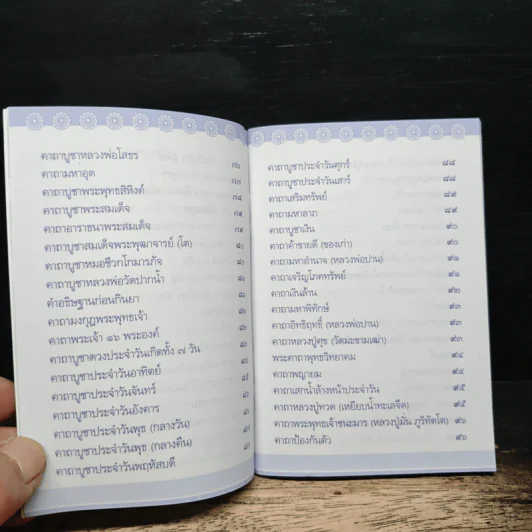 คาถาบูชาหลวงพ่อโสธร ๗๖
คาถามหาอุด ๗๗
คาถาบูชาพระพุทธสิหิงค์ ๗๘
คาถาบูชาพระสมเด็จ ๗๙
คาถาอาราธนาพระสมเด็จ ๗๙
คาถาบูชาสมเด็จพระพุฒาจารย์ (โต) ๘๐
คาถาบูชาหมอชีวกโกมารภัจ ๘๑
คาถาบูชาหลวงพ่อวัดปากน้ำ ๘๑
คำอธิษฐานก่อนกินยา ๘๑
คาถามงกุฎพระพุทธเจ้า ๘๒
คาถาพระเจ้า ๑๖ พระองค์ ๘๓
คาถาบูชาดวงประจำวันเกิดทั้ง ๗ วัน ๘๔
คาถาบูชาประจำวันอาทิตย์ ๘๕
คาถาบูชาประจำวันจันทร์ ๘๕
คาถาบูชาประจำวันอังคาร ๘๖
คาถาบูชาประจำวันพุธ (กลางวัน)
คาถาบูชาประจำวันพุธ (กลางคืน)
คาถาบูชาประจำวันพฤหัสบดี
คาถาบูชาประจำวันศุกร์ ๘๘
คาถาบูชาประจำวันเสาร์ ๘๘
คาถาเสริมทรัพย์ ๘๙
คาถามหาลาภ ๘๙
คาถาบูชาเงิน ๙๐
คาถาค้าขายดี (ของเก่า) ๙๐
คาถามหาอำนาจ (หลวงพ่อปาน) ๙๑
คาถาเจริญโภคทรัพย์ ๙๑
คาถาเงินล้าน ๙๒
คาถามหาพิทักษ์ ๙๒
คาถาอิทธิฤทธิ์ (หลวงพ่อปาน) ๙๓
คาถาหลวงปู่ศุข (วัดมะขามเฒ่า) ๙๓
พระคาถาพุทธวิทยาคม ๙๔
คาถาพญายม ๙๔
คาถาเสกน้ำล้างหน้าประจำวัน ๙๕
คาถาหลวงปู่ทวด (เหยียบน้ำทะเลจืด) ๙๕
คาถาพระพุทธเจ้าชนะมาร (หลวงปู่มั่น ภูริทัตโต) ๙๖
คาถาป้องกันตัว ๙๖